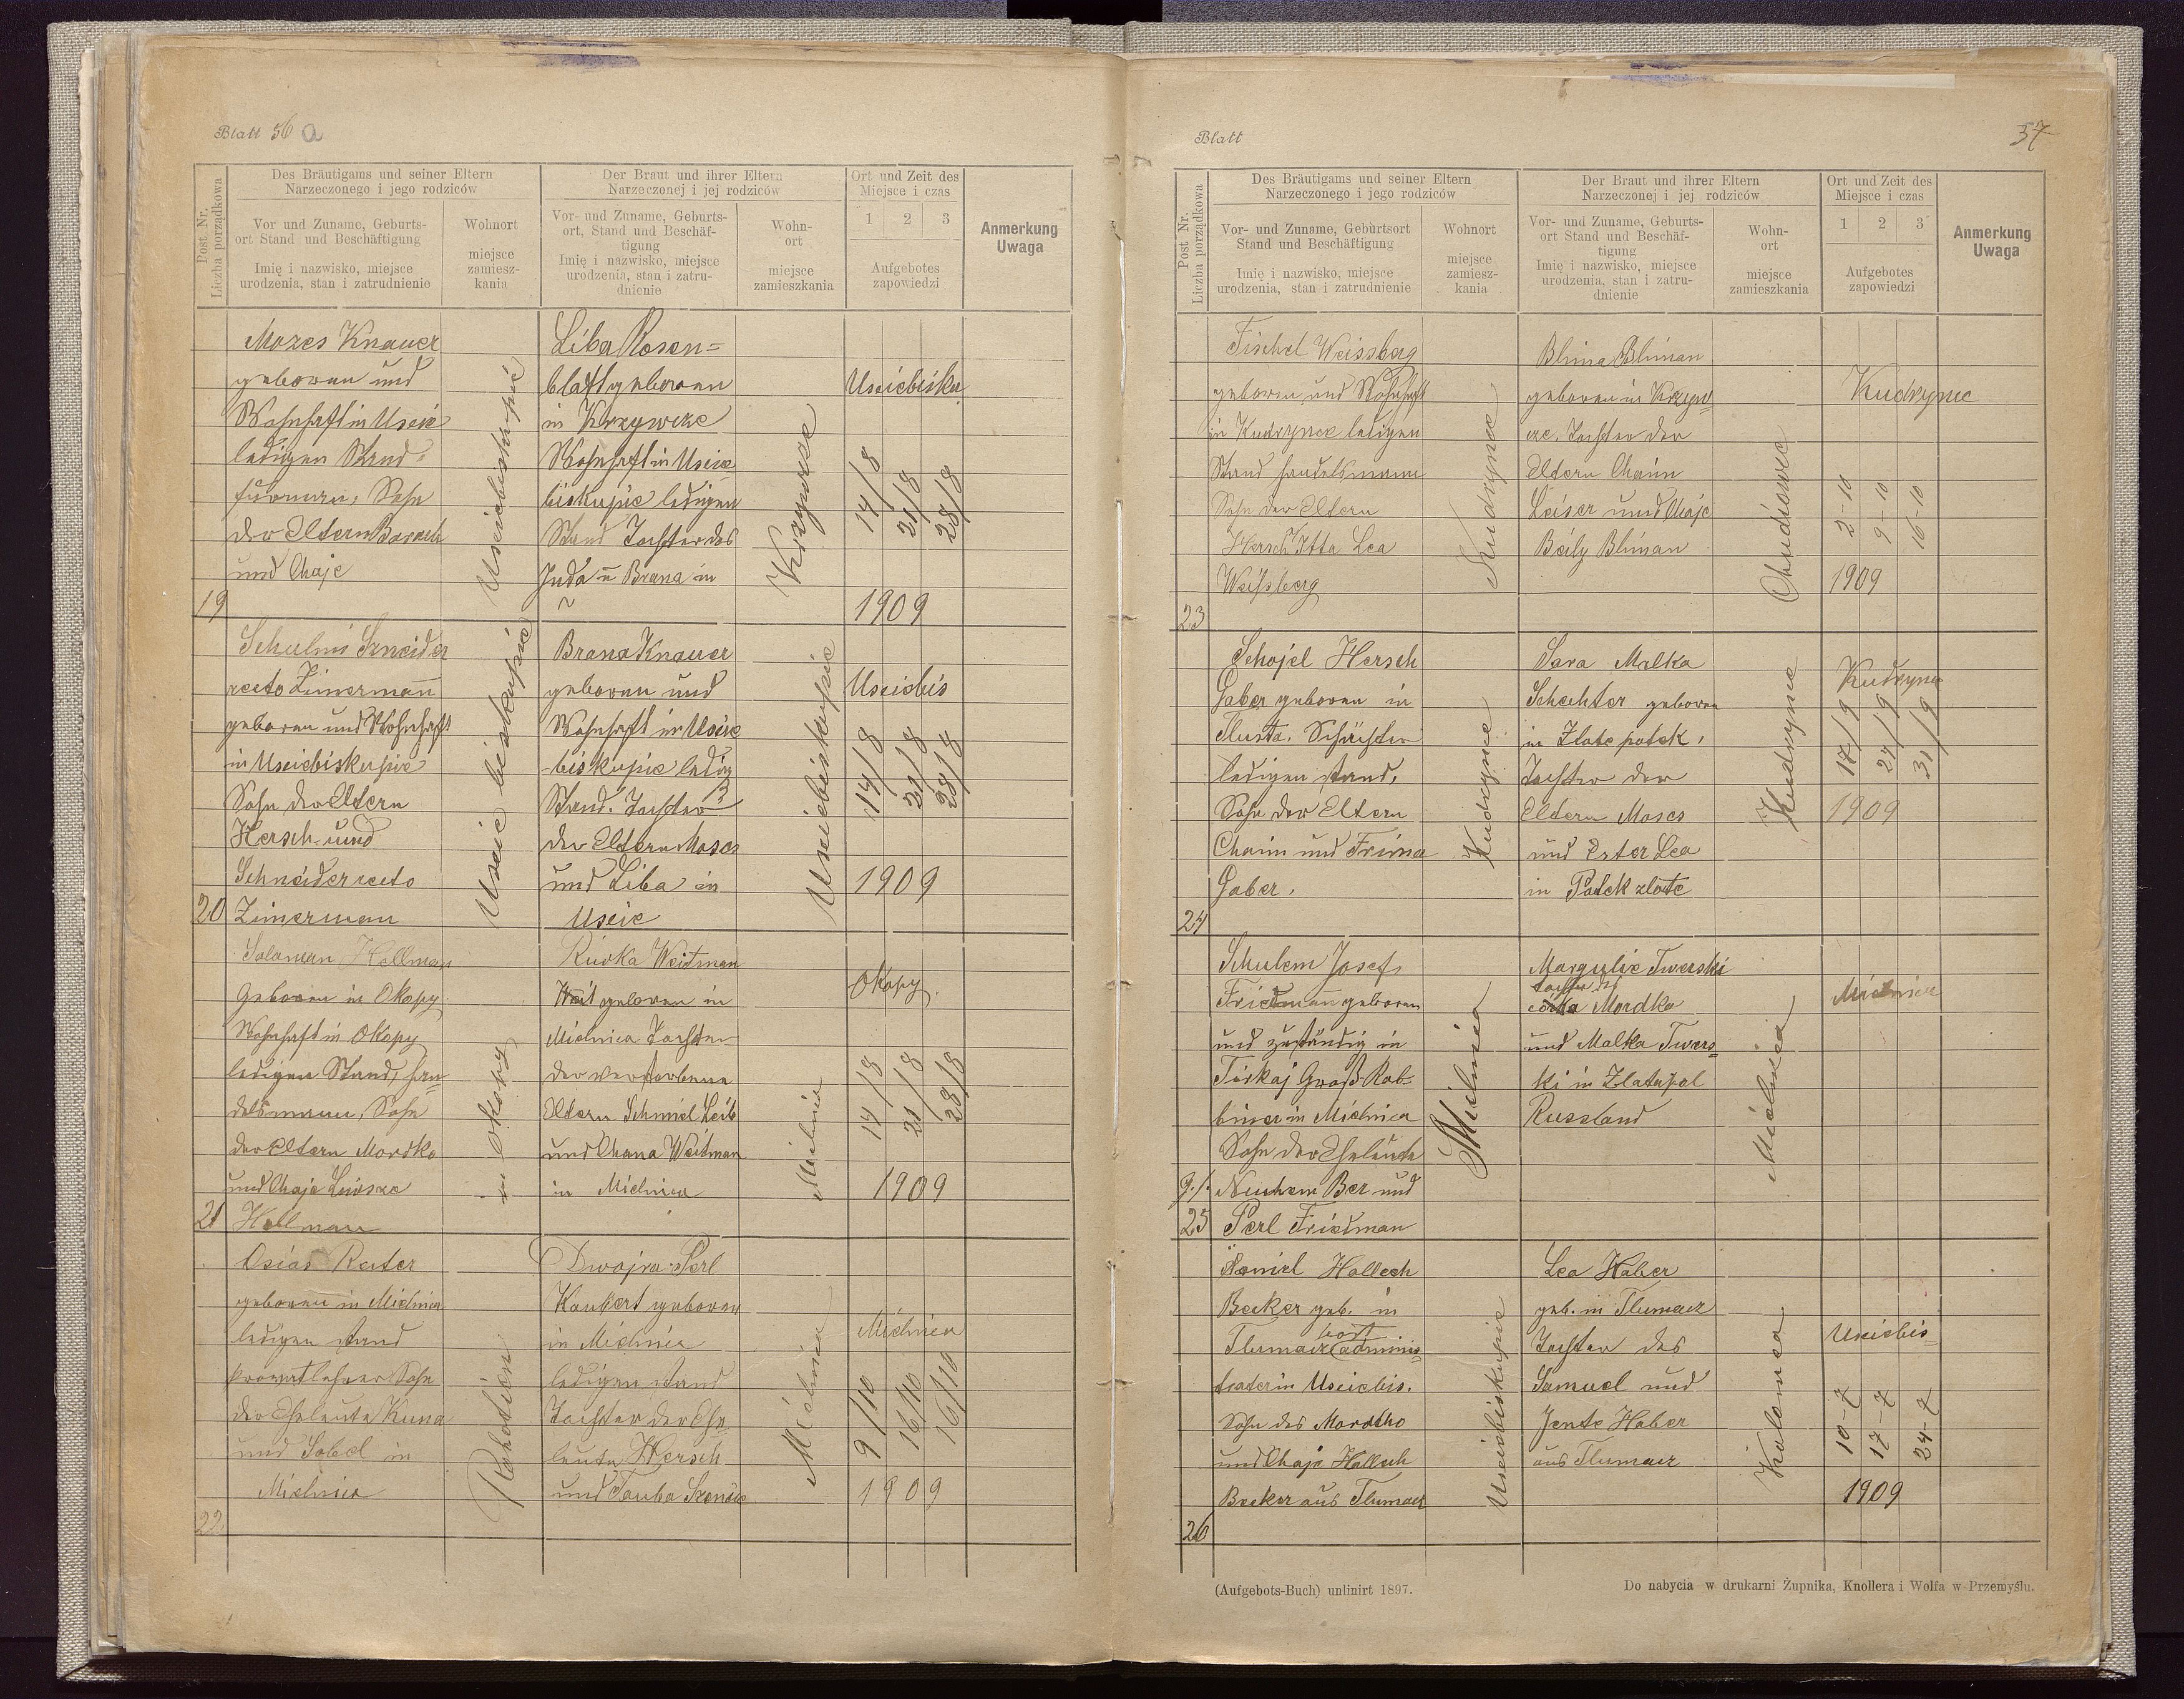 Blatt 56 a
Post. Nr.
Liczba porządkowa
Des Bräutigams und seiner Eltern
Narzeczonego i jego rodziców
Vor und Zuname, Geburts-
ort Stand und Beschäftigung
Imię i nazwisko, miejsce
urodzenia, stan i zatrudnienie
Wohnort
miejsce
zamiesz-
kania
Der Braut und ihrer Eltern
Narzeczonej i jej rodziców
Vor- und Zuname, Geburts-
ort, Stand und Beschäf-
tigung
Imię i nazwisko, miejsce
urodzenia, stan i zatru-
dnienie
Wohn-
ort
miejsce
zamieszkania
Ort und Zeit des
Miejsce i czas
1 2 3
Aufgebotes
zapowiedzi
Anmerkung
Uwaga
19
Mozes Knauer
geboren und
Wohnhaft in Uscie
ledigen Stand
Sohn
der Eltern Barach
und Chaje
Usciebiskupie
Liba Rosen=
blatt geboren
in Krzywcze
Wohnhaft in Uscie
biskupie ledigen
Stand Tochter des
Juda u Brana in
Krzywcze
Usciebisku
14/8
21/8
28/8
1909
20
Schulim Szneider
recto Zimermann
geboren und Wohnhaft
in Usciebiskupie
Sohn der Eltern
Hersch und
Schneider recto
Zimerman
Uscie biskupie
Brana Knauer
geboren und
Wohnhaft in Uscie
biskupie ledig
Stand. Tochter
der Eltern Moses
und Liba in
Uscie
Usciebiskupie
Usciebis
14/8
21/8
28/8
1909
21
Salaman Hellman
Geboren in Okopy
Wohnhaft in Okopy
ledigen Stand, han-
delsmann, Sohn
der Eltern Mordko
und Chaje
Hellman
in Okopy
Riwka Weitman
geboren in
Mielnica Tochter
der verstorbene
Eltern Schmiel Leib
und Chana Weitman
in Mielnica
Mielnica
Okopy
14/8
21/8
28/8
1909
22
Osias Reiter
geboren in Mielnica
ledigen stand
privatlehrer Sohn
der Eheleute Kuna
und Sobel in
Mielnica
Rohatien
Dwojra Perl
geboren
in Mielnica
ledigen stand
Tochter der Ehe
leute Hersch
und Tauba
Mielnica
Mielnica
9/10
16/10
16/10
1909
Blatt
57
Post Nr.
Liczba porządkowa
Des Bräutigams und seiner Eltern
Narzeczonego i jego rodziców
Vor- und Zuname, Geburtsort
Stand und Beschäftigung
Imię i nazwisko, miejsce
urodzenia, stan i zatrudnienie
Wohnort
miejsce
zamiesz-
kania
Der Braut und ihrer Eltern
Narzeczonej i jej rodziców
Vor- und Zuname, Geburts-
ort Stand und Beschäf-
tigung
Imię i nazwisko, miejsce
urodzenia, stan i zatru-
dnienie
Wohn-
ort
miejsce
zamieszkania
Ort und Zeit des
Miejsce i czas
1 2 3
Aufgebotes
zapowiedzi
Anmerkung
Uwaga
23
Fischel Weissberg
geboren und Wohnhaft
in Kudrynce ledigen
Stand handelsmann
Sohn der Eltern
Hersch Itta Lea
Weissberg
Kudrynce
Blima Bliman
geboren in Krzyw
cze, Tochter der
Eltern Chaim
Leiser und Chaje
Beily Bliman
Chudiowce
Kudrynce
2-10
9-10
16-10
1909
24
Schojel Hersch
Gaber geboren in
Tlusta. Schuster
ledigen stand,
Sohn der Eltern
Chaim und Frima
Gaber.
Kudrynce
Sara Malka
Schechter geboren
in Zlote potok,
Tochter der
Eltern Moses
und Ester Lea
in Potok zlote
Kudrynce
Kudrynce
17/9
24/9
31/9
1909
25
Schulem Josef
Friedmann geboren
und zuständig in
Groß Rab-
biner in Mielnica
Sohn der Eheleute
Nuchem Ber und
Perl Friedman
Mielnica
Margulie Twerski
Tochter des
Mordko
und Malka Twers-
ki in Zlatapol
Russland
Mielnica
Mielnica
26
Daniel Hallech
Becker geb. in
Tlumacz adminis-
trator in Usciebis.
Sohn des Mordko
und Chaje Hallech
Becker aus Tlumacz
Usciebiskupie
Lea Haber
geb. in Tlumacz
Tochter des
Samuel und
Jente Haber
aus Tlumacz
Kolomea
Usciebis
10-7
17-7
24-7
1909
(Aufgebots-Buch) unlinirt 1897.
Do nabycia w drukarni Żupnika, Knollera i Wolfa w Przemyślu.